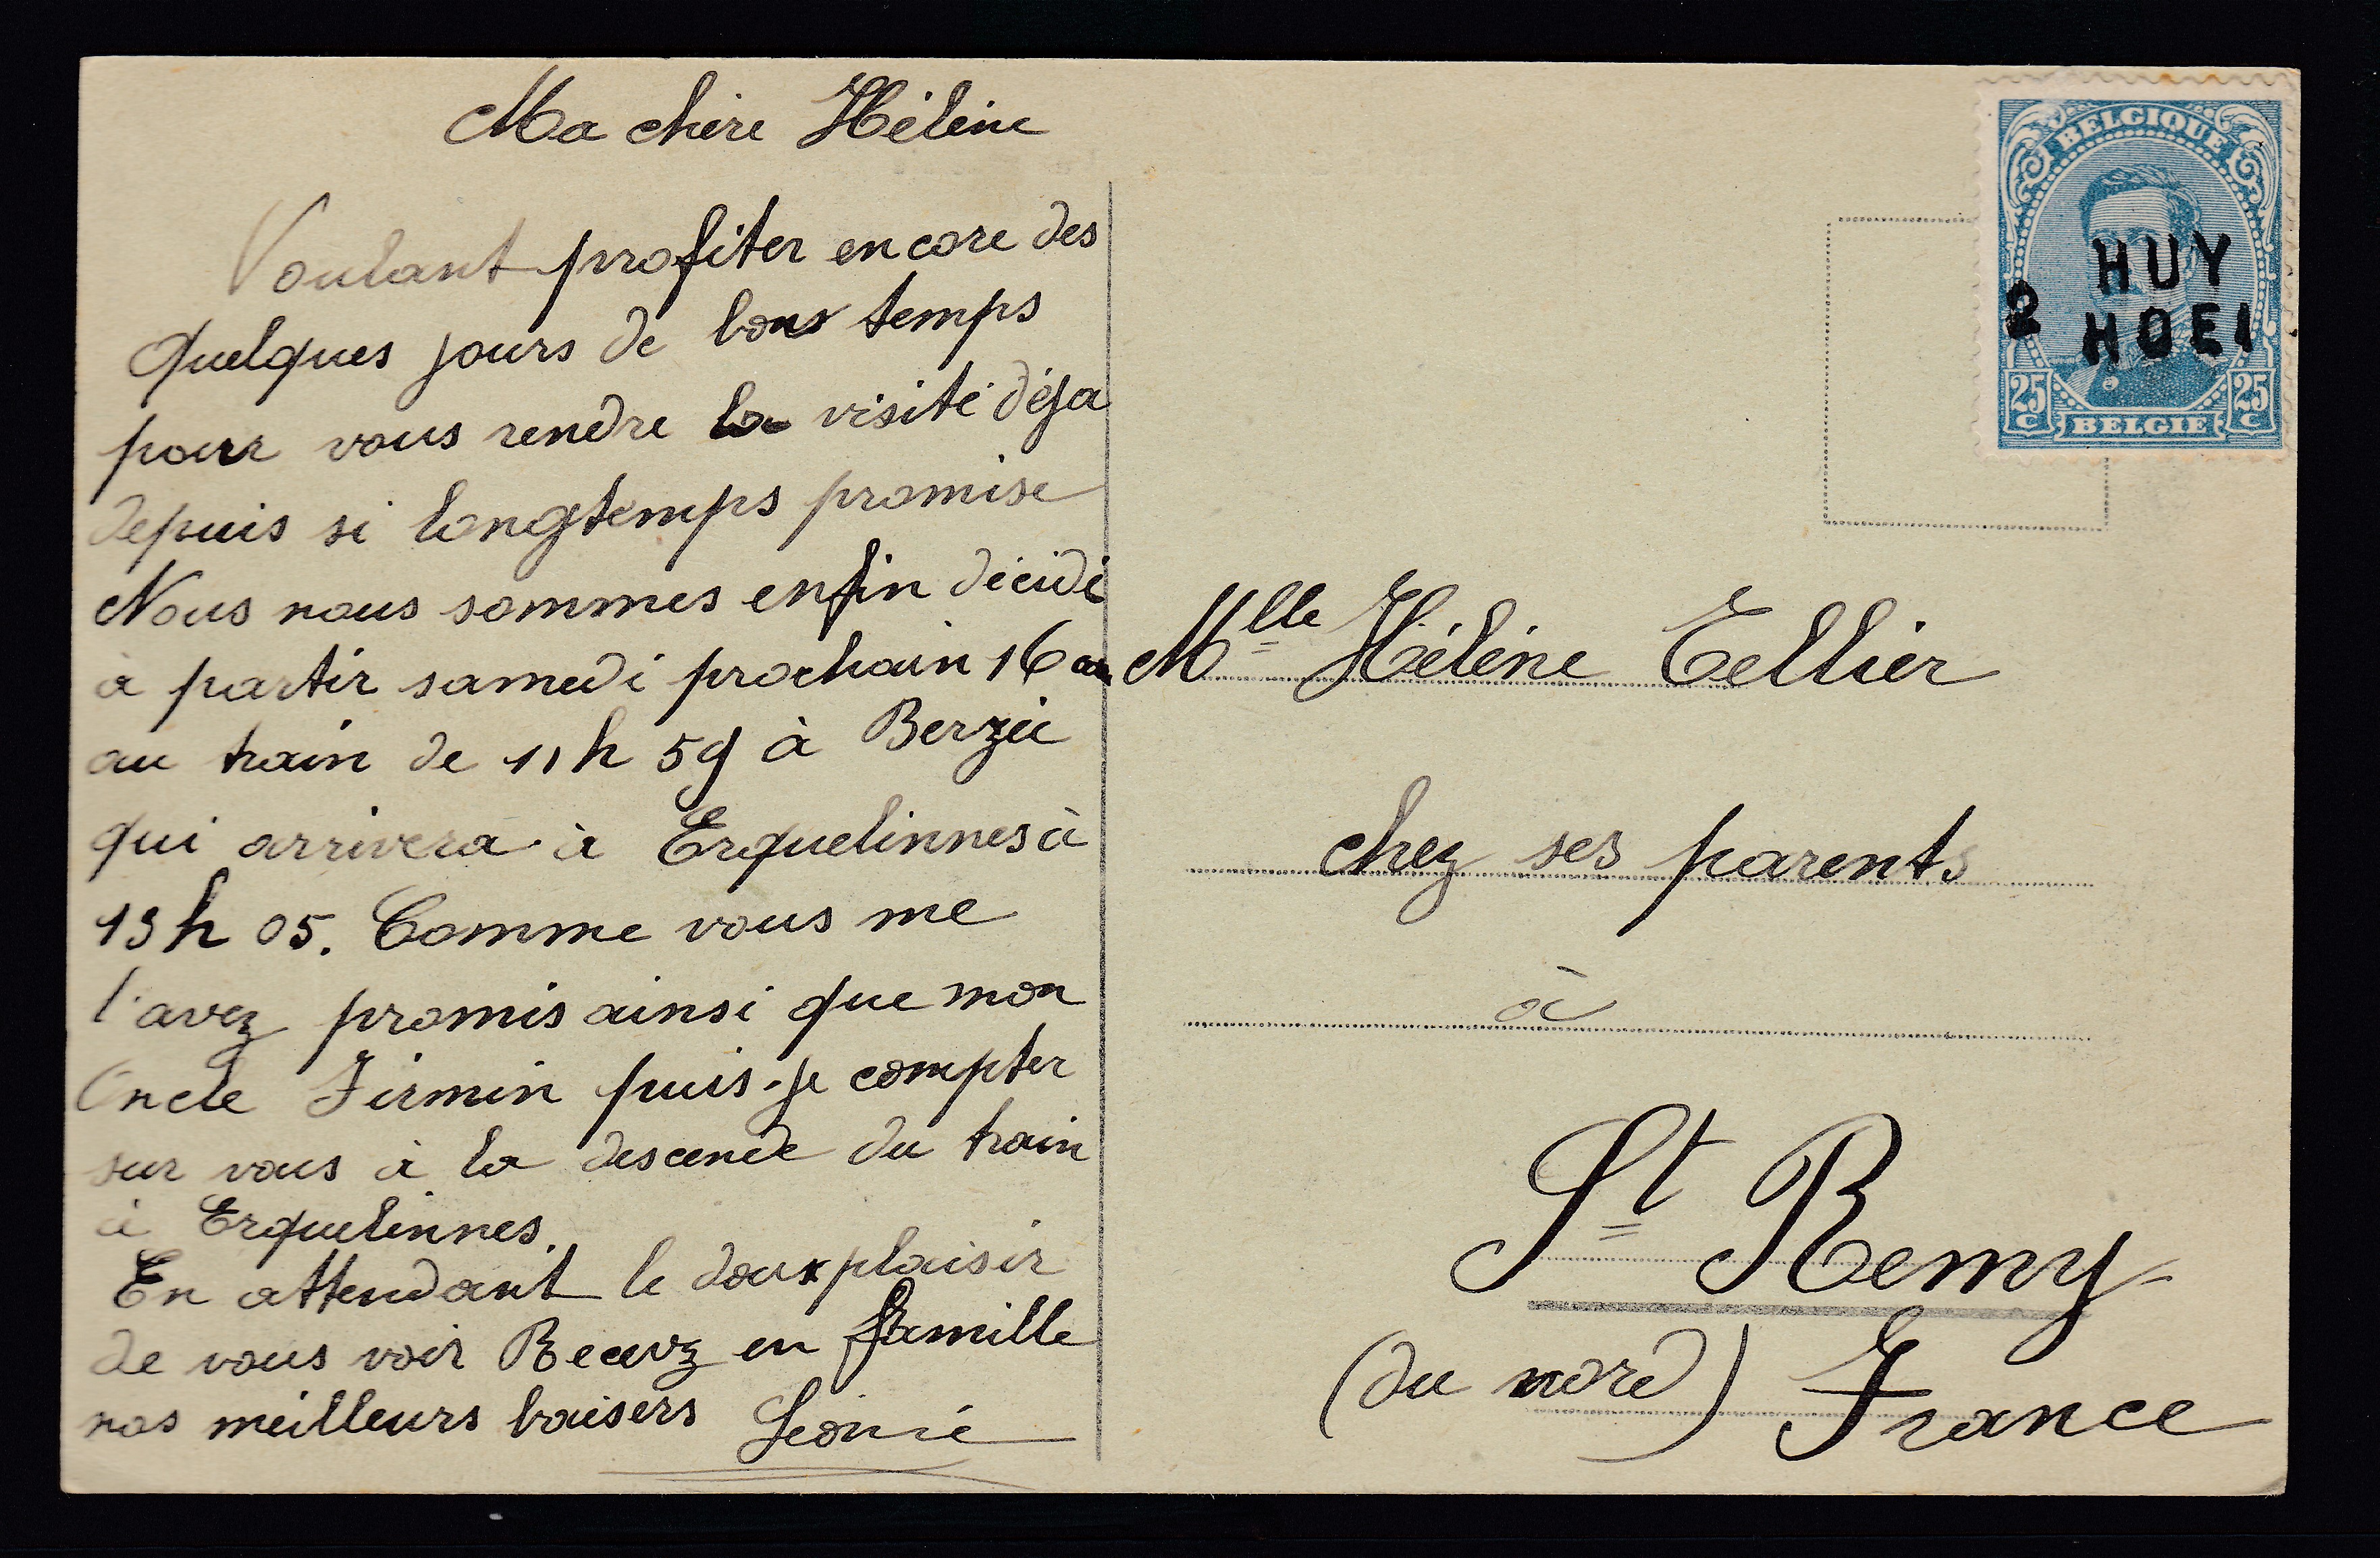 Ma chère Hélène
Voulant profiter encore des
quelques jours de bons temps
pour vous rendre la visite déja
depuis si longtemps promise
Nous nous sommes enfin décidé
à partir samedi prochain 16 au
au train de 11 h 59 à Berzée
qui arrivera à Erquelinnes à
13 h 05. Comme vous me
l'avez promis ainsi que mon
Oncle Firmin puis-je compter
sur vous à la descende du train
à Erquelinnes.
En attendant le doux plaisir
de vous voir Recevz en famille
nos meilleurs baisers Léonie
BELGIQUE
2 HUY
HOEI
25 c BELGIE 25 c
Mlle Hélène Tellier
chez ses parents
à
St Remy
(du nord) France